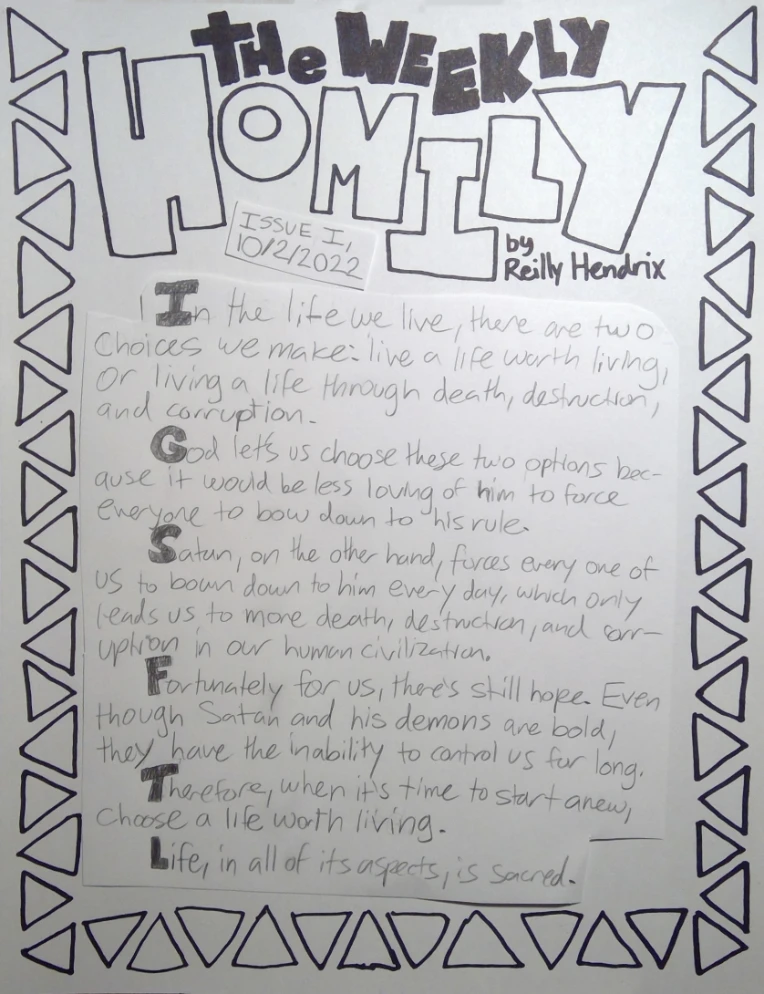 THE WEEKLY
HOMILY
ISSUE I,
10/2/2022
by
Reilly Hendrix
In the life we live, there are two
choices we make: live a life worth living,
or living a life through death, destruction,
and corruption.
God let's us choose these two options bec-
ause it would be less loving of him to force
everyone to bow down to his rule.
Satan, on the other hand, forces every one of
us to bown down to him every day, which only
leads us to more death, destruction, and corr-
uption in our human civilization.
Fortunately for us, there's still hope. Even
though Satan and his demons are bold,
they have the inability to control us for long.
Therefore, when it's time to start anew,
choose a life worth living.
Life, in all of its aspects, is sacred.